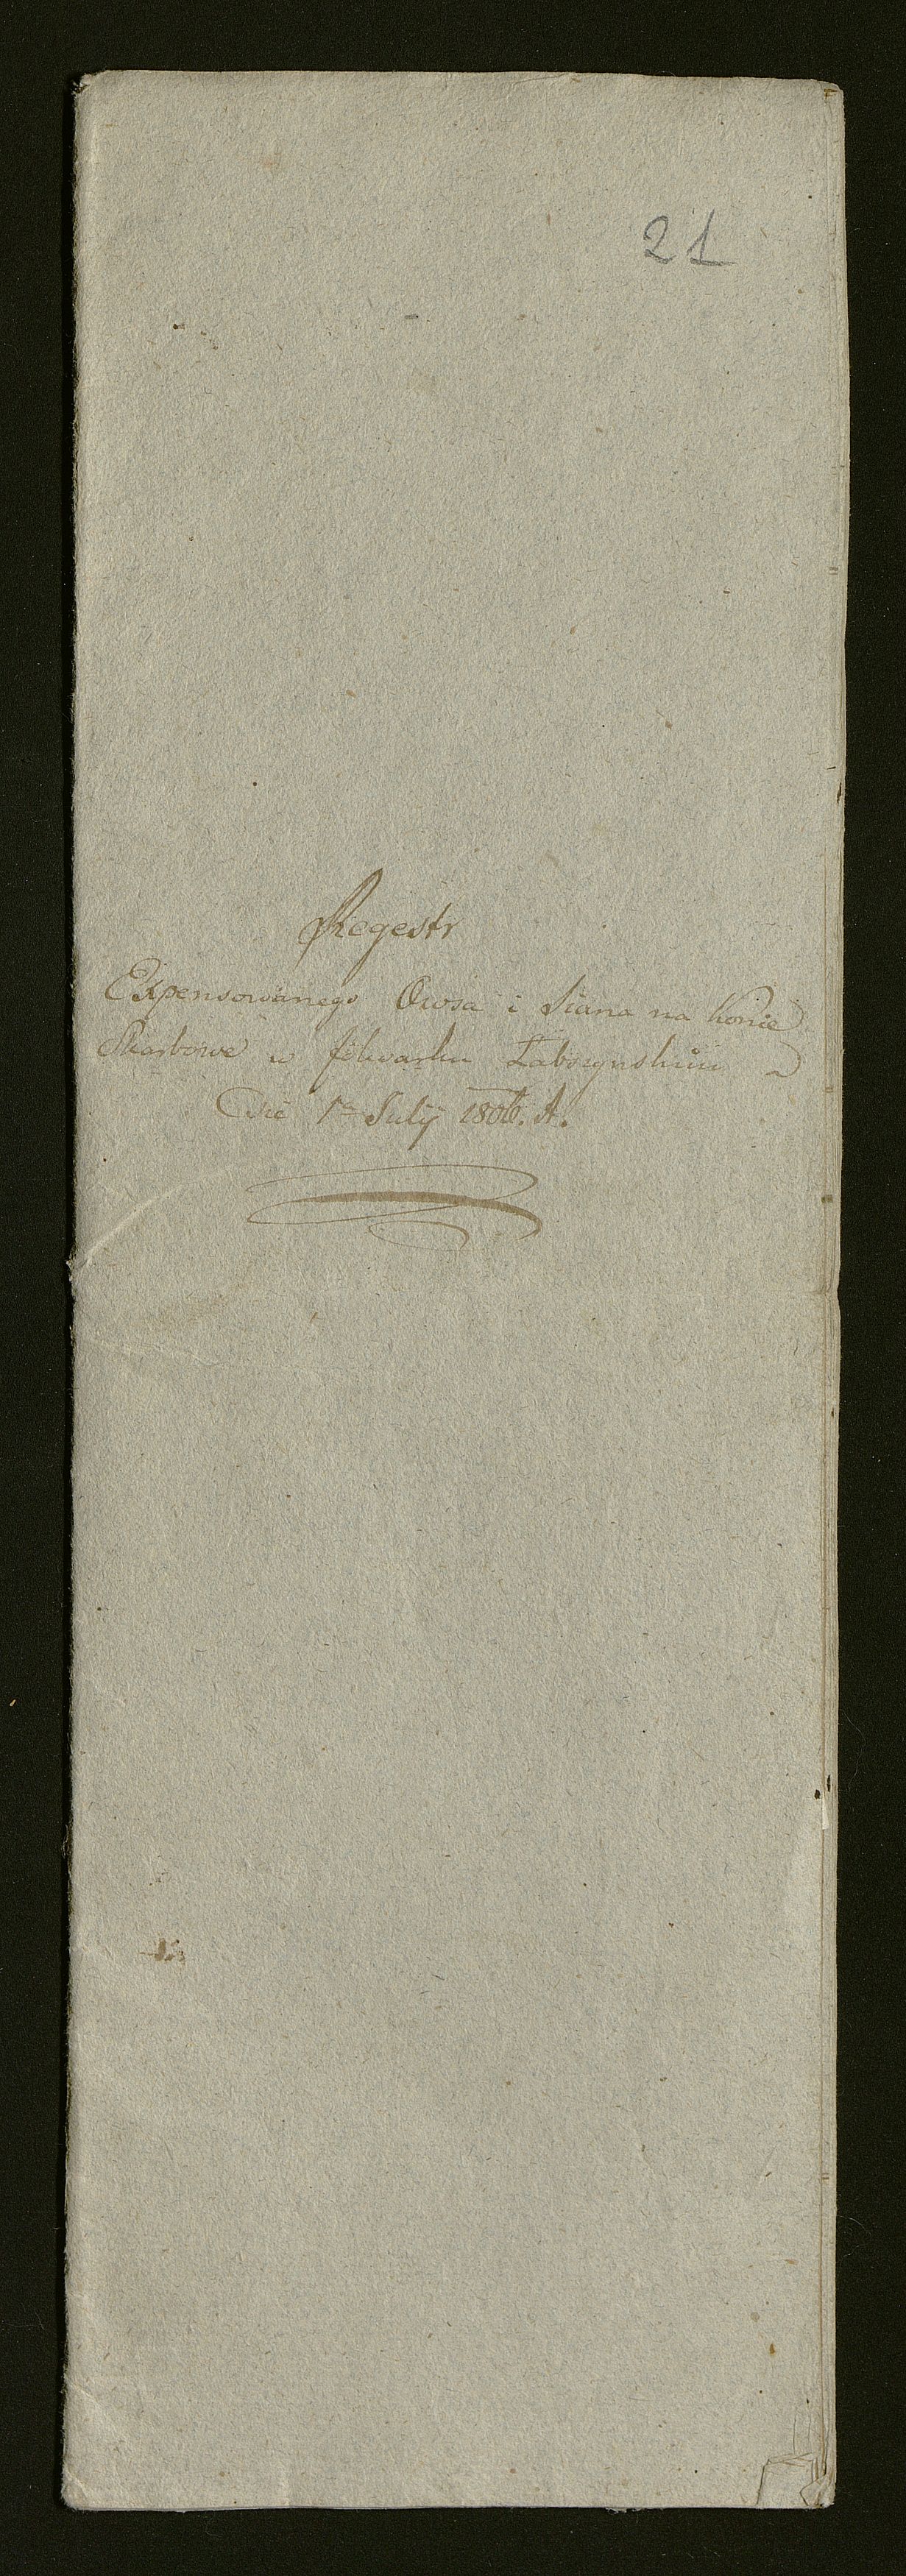 21
Regestr
Expensowanego Owsa i Siana na konie
Skarbowe w folwarku Łaboszynskim
Die 1ma Julÿ 1806. A.